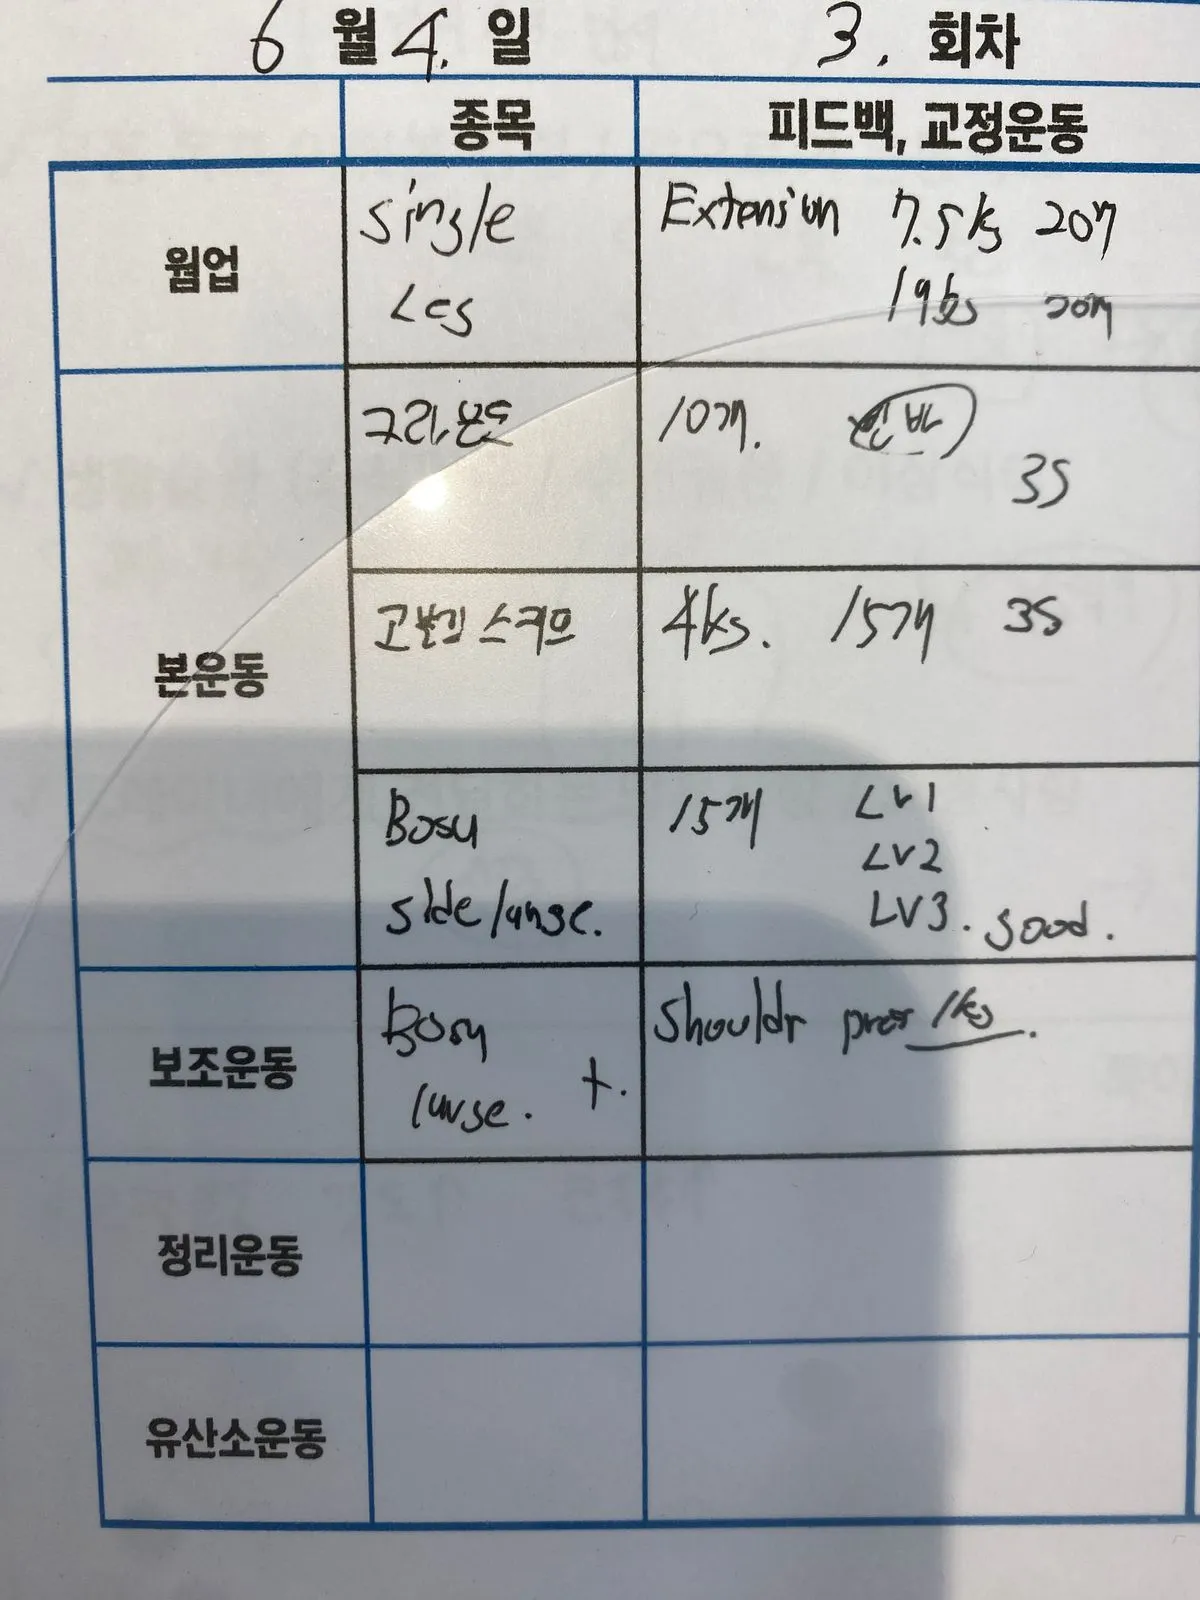 6 월 4. 일 3. 회차
종목 피드백, 교정운동
웜업
Single Extension 7.5kg 20개
Leg 19kg 20개
본운동
10개.
3S
고블릿 스쿼트 4kg. 15개 3S
Bosu 15개 LV1
LV2
side lunge. LV3. good.
보조운동
Bosu shouldr press 1kg.
lunge. +.
정리운동
유산소운동